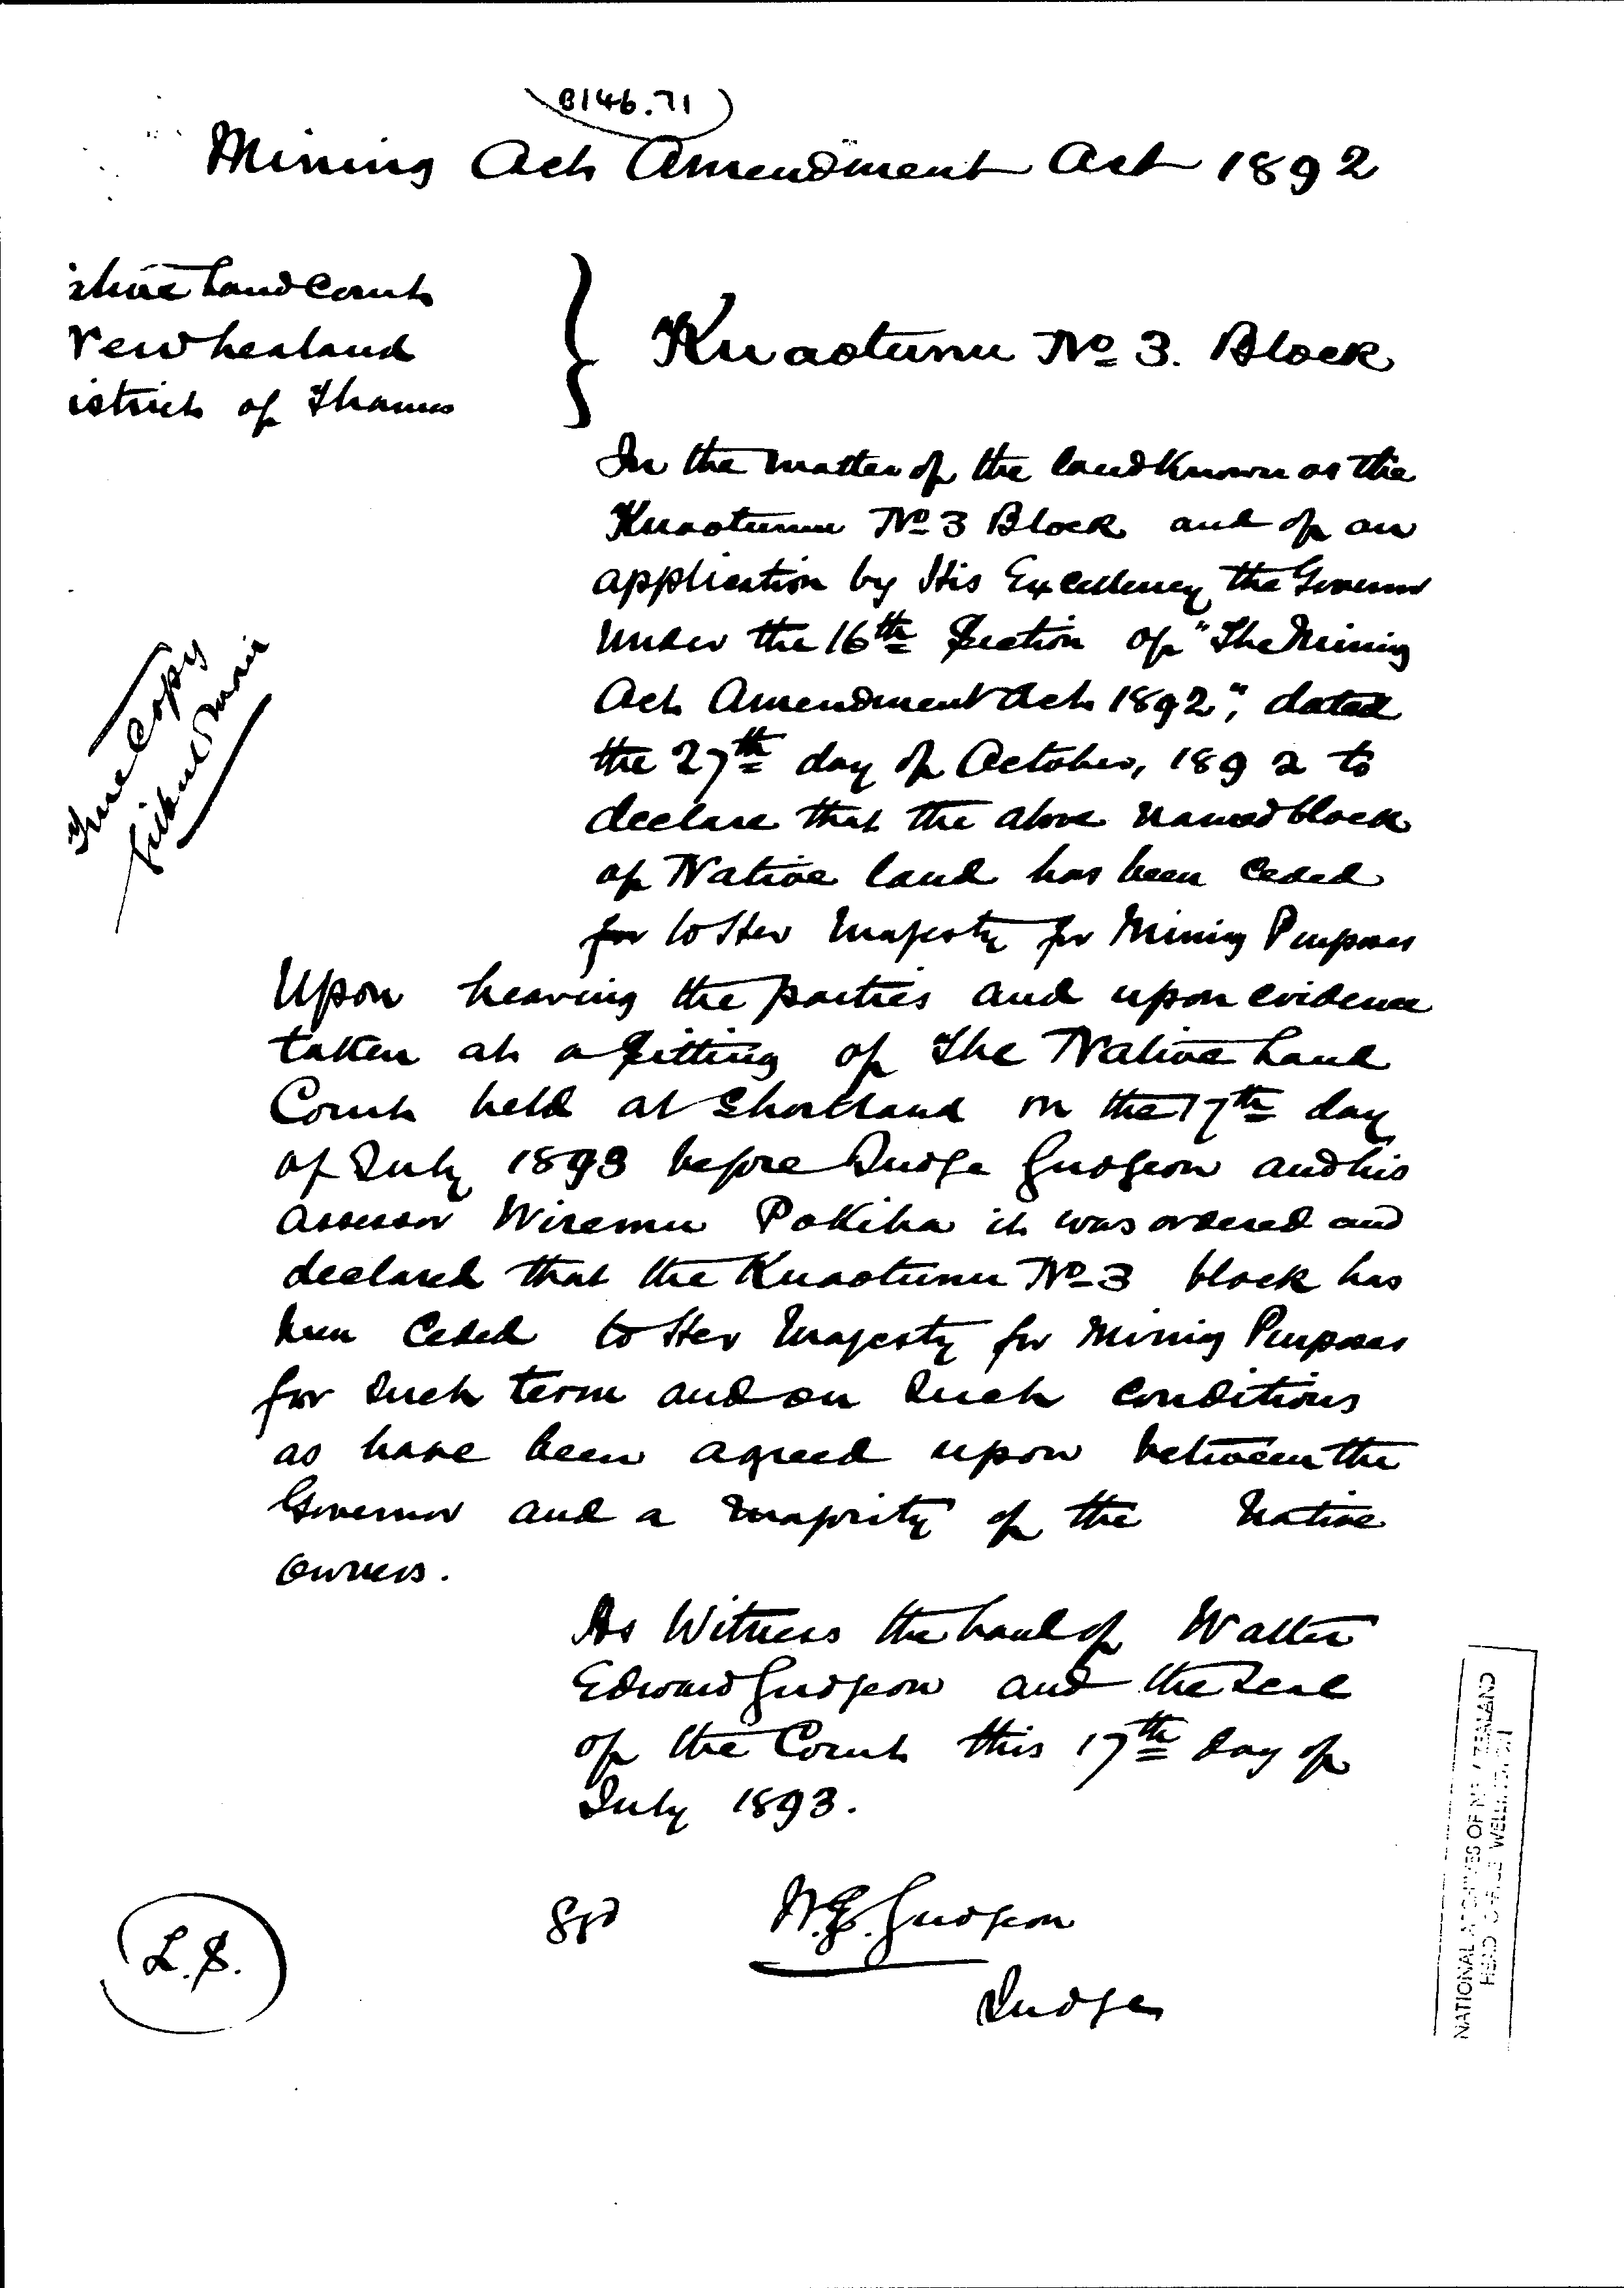 B146.71
Mining Act Amendment Act 1892
ative Land Court
New Zealand
istrict of Thames
Kuaotunu No 3. Block
In the matter of the land Known as the
Kuaotunu No 3 Block and of an
application by His Excellency the Governor
Under the 16th Section of "The Mining
Act Amendment Act 1892", dated
the 27th day of October, 1892 to
declare that the above named block
of Native land has been Ceded
for to Her Majesty for Mining Purposes
True Copy
Gilbert Mair
Upon hearing the parties and upon evidence
taken at a Sitting of the Native Land
Court held at Shortland on the 17th day
of July 1893 before Judge Gudgeon and his
assessor Wiremu Pokiha it was ordered and
declared that the Kuaotunu No 3 block has
been Ceded to Her Majesty for Mining Purposes
for such term and on such conditions
as have been agreed upon between the
Governor and a majority of the Native
owners.
As Witness the hand of Walter
Edward Gudgeon and the Seal
of the Court this 17th day of
July 1893.
L.S.
Sgd W.E. Gudgeon
Judge
NATIONAL ARCHIVES OF NEW ZEALAND
HEAD OFFICE WELLINGTON